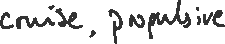 cruise, propulsive